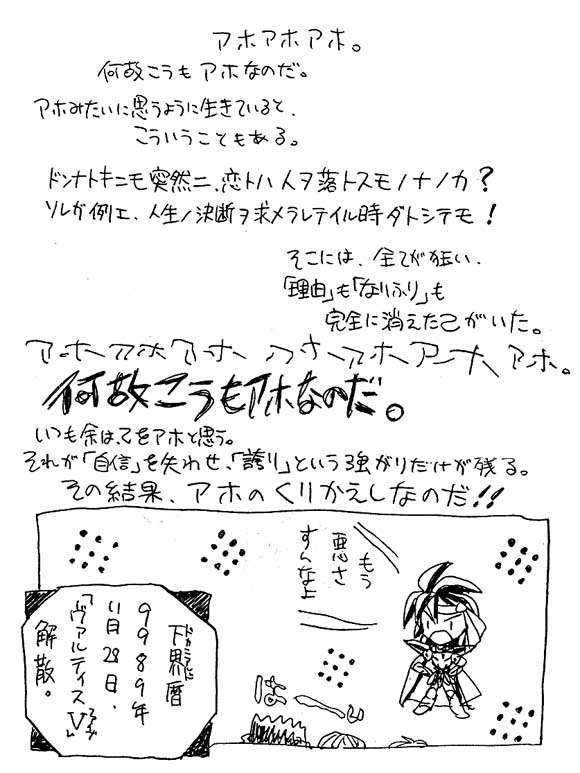 アホアホアホ。
何故こうもアホなのだ。
アホみたいに思うように生きていると、
こういうこともある。
ドンナトキニモ突然ニ、恋トハ人ヲ落トスモノナノカ?
ソレガ例エ、人生ノ決断ヲ求メラレテイル時ダトシテモ!
そこには、全てが狂い、
「理由」も「なりふり」も
完全に消えた己がいた。
アホアホアホアホアホアホアホ。
何故こうもアホなのだ。
いつも余は己をアホと思う。
それが「自信」を失わせ、「誇り」という強がりだけが残る。
その結果、アホのくりかえしなのだ!!
もう
悪さ
すんなよ
は〜い
9989年
11日28日、
「ヴァルティスV」
ファイブ
解散。